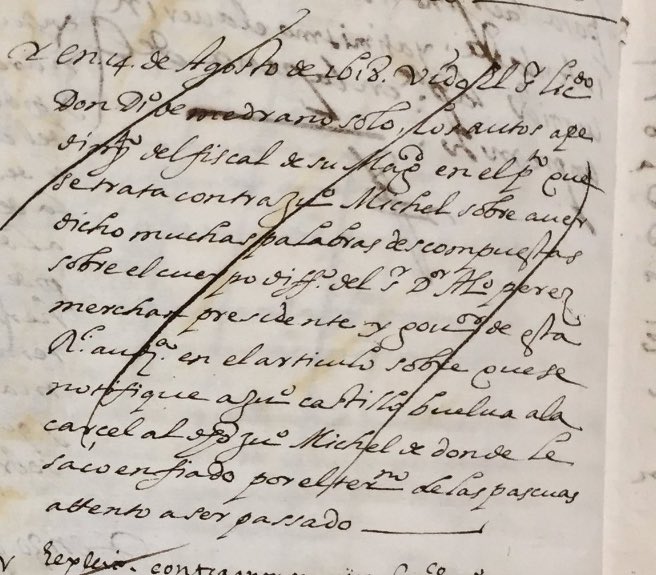 Y en .14. de Agosto de 1618. Vido el sr licdo
Don Dio de medrano solo, los autos a pe
dimto del fiscal de su Magd en el pto que
se trata contra juo Michel sobre aver
dicho muchas palabras descompuestas
sobre el cuerpo diffto del sr Dor Alo perez
merchan presidente y gouor de esta
Rl audia en el articulo sobre que se
notifique a juo castillo buelua a la
carcel al dho juo Michel de donde le
saco en fiado por el termno de las pascuas
attento a ser passado